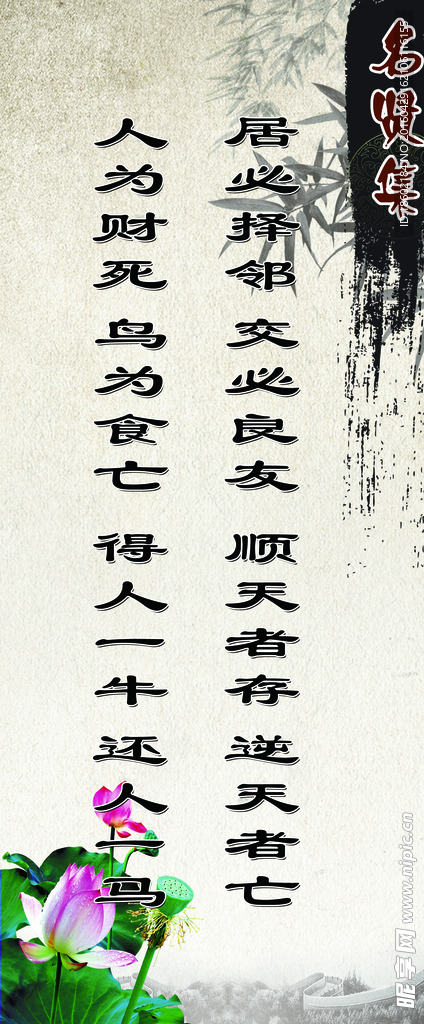 名贤集
居必择邻 交必良友 顺天者存 逆天者亡
人为财死 鸟为食亡 得人一牛 还人一马
昵图网 www.nipic.cn